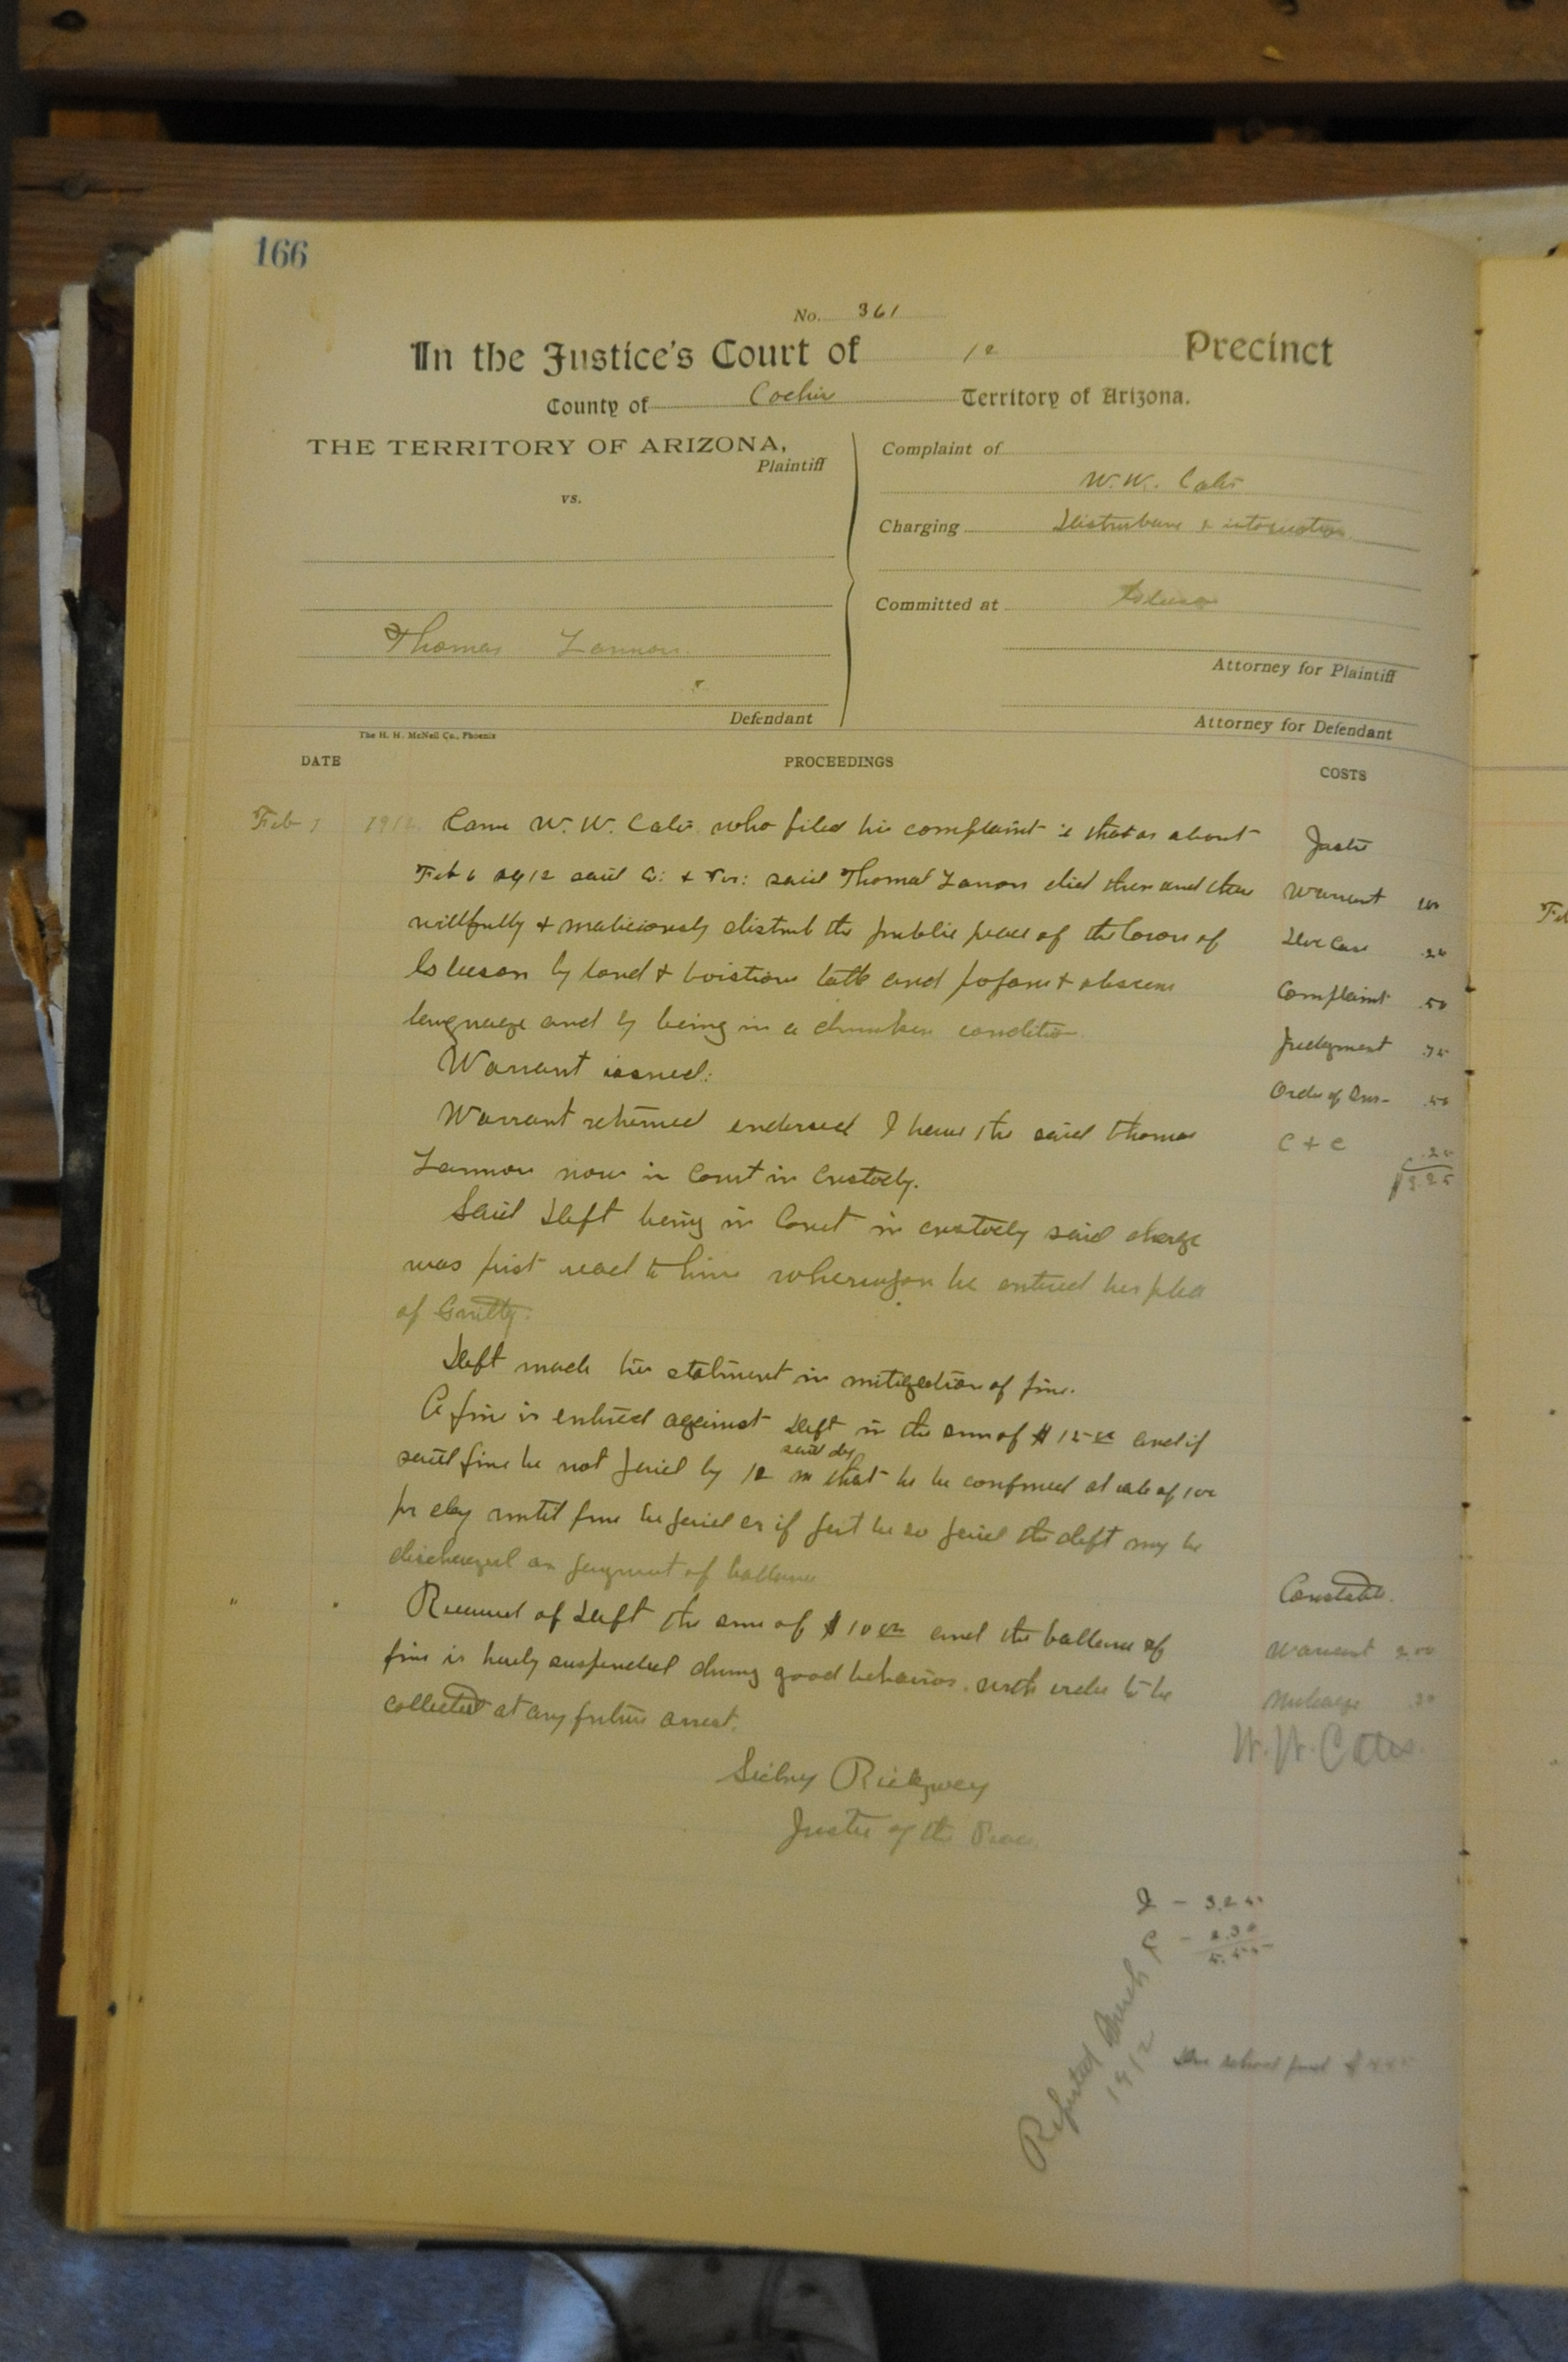 166
No. 361
In the Justice's Court of 12 Precinct
County of Cochise Territory of Arizona.
THE TERRITORY OF ARIZONA,
Plaintiff
vs.
Thomas Lannon.
Defendant
Complaint of
W. W. Cates
Charging Disturbance & intoxication
Committed at
Attorney for Plaintiff
Attorney for Defendant
The H. H. McNeil Co., Phoenix
DATE PROCEEDINGS COSTS
Feb 7 1912. Came W. W. Cates who filed his complaint that on about
Feb 6 1912 said Co: & Ter: said Thomas Lannon did then and there
willfully & maliciously disturb the public peace of the town of
by loud & boistious talk and profane & obscene
language and by being in a drunken condition.
Warrant issued:
Warrant returned endorsed I have the said Thomas
Lannon now in Court in Custody.
Said Deft being in Court in custody said charge
was first read to him whereupon he entered his plea
of Guilty.
Deft made his statment in mitigation of fine.
A fine is entered against Deft in the sum of $15 00 and if
said day
said fine be not paid by 12 m that he be confined at rate of 1 00
per day until fine be paid or if part be so paid the deft may be
discharged on payment of ballance
Received of Deft the sum of $10 00 and the ballance of
fine is hereby suspended during good behavior. with order to be
collected at any future arrest.
Sidney Ridgway
Justice of the Peace
Justice
Warrant 1 00
.20
Complaint .50
Judgment .75
Order of .50
C + C .25
$3.25
Constable.
Warrant 2 00
Mileage .30
W. W. Cates.
J - 3.25
C - 2.30
5.55
Reported March
1912
school fund $4.45
Feb